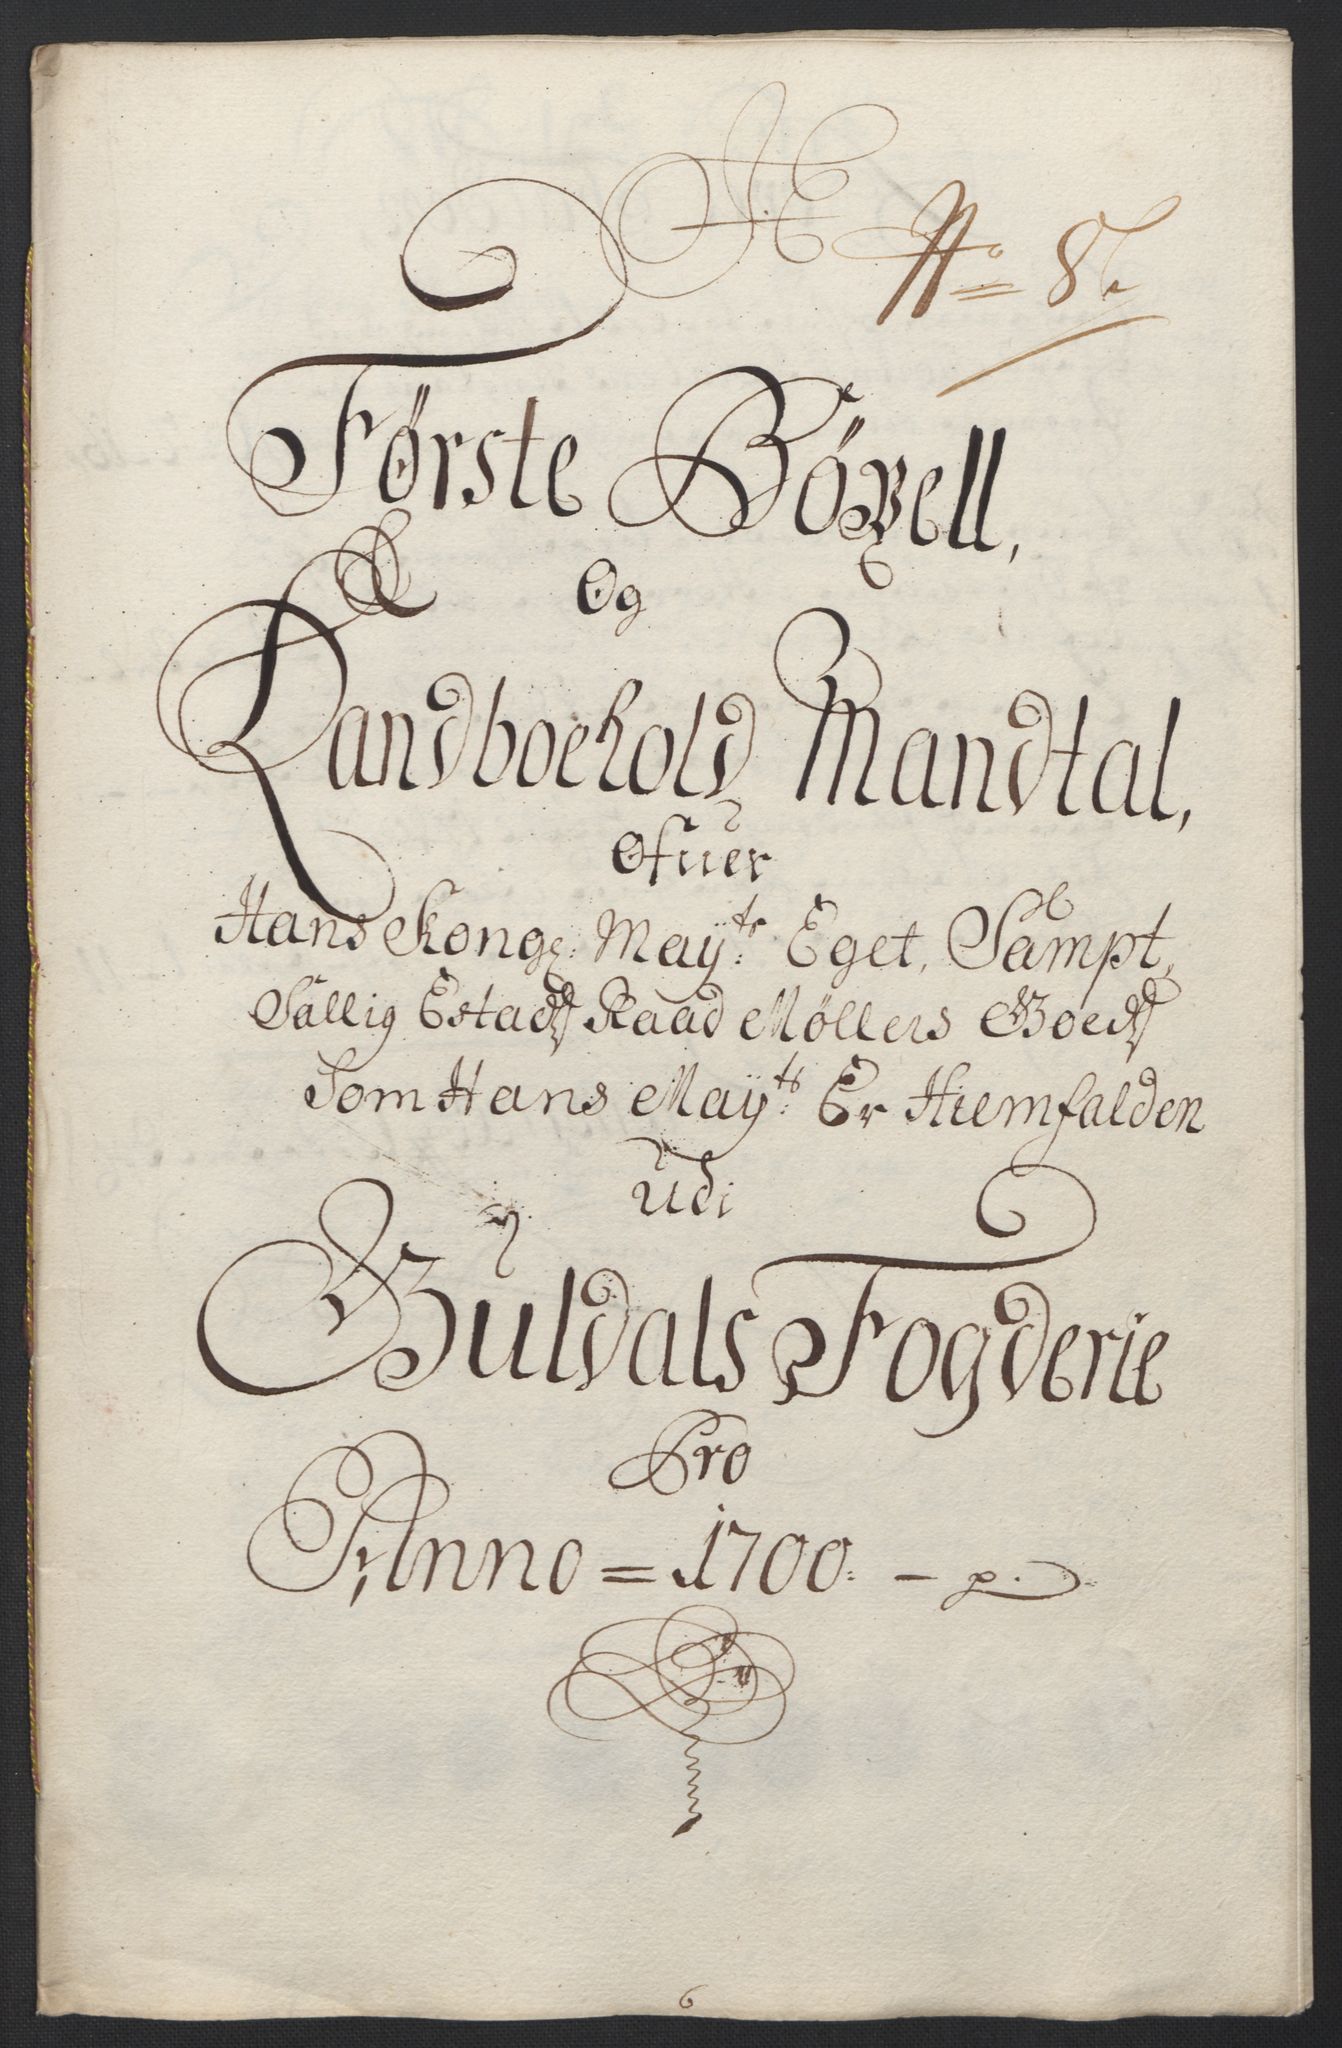 No = 8
Første Böxell,
Og
Landboehold Mandtal,
Ofuer
Hans Kong: Mayts: Eget, Sampt,
Sallig Estads Raad Møllers Goeds
Som Hans Mayts: Er Hiemfalden
Udi
Guldals Fogderie
Pro
Anno = 1700. - p.
6